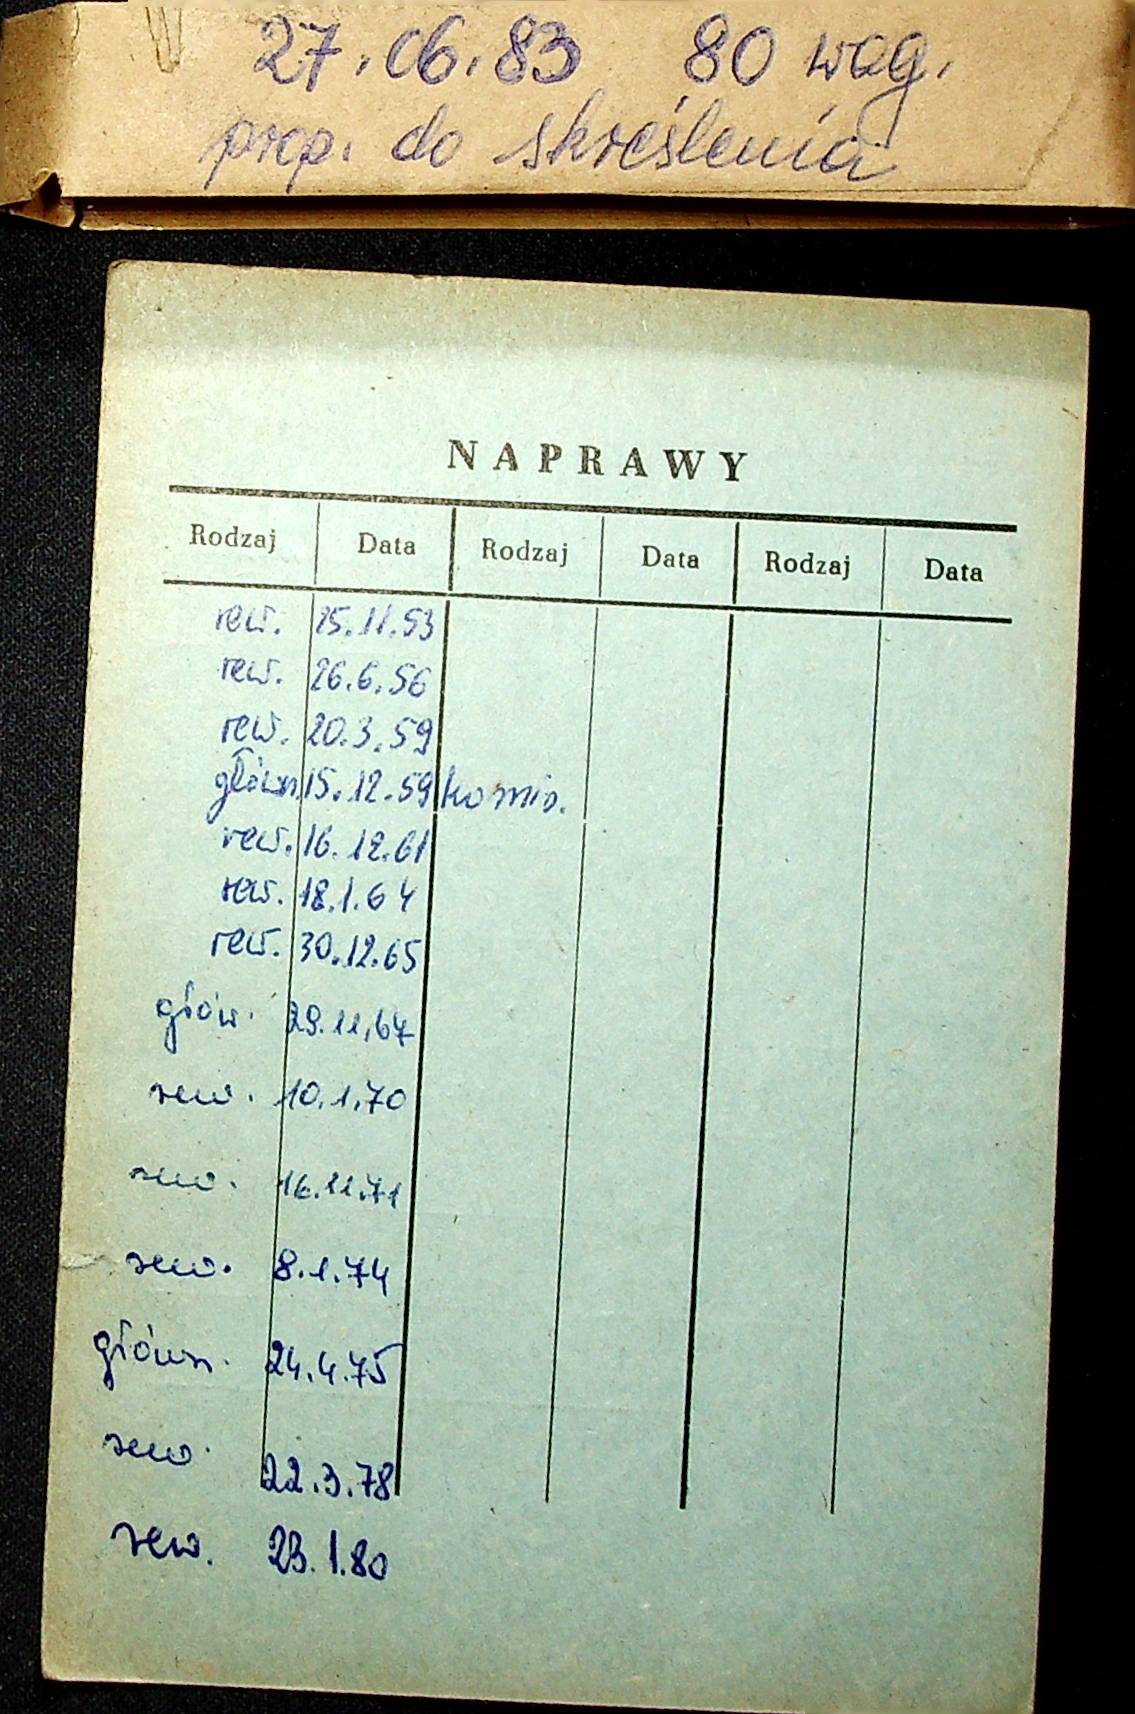 27.06.83 80 wag.
prop. do skreślenia
NAPRAWY
Rodzaj Data Rodzaj Data Rodzaj Data
rew. 25.11.53
rew. 26.6.56
rew. 20.3.59
główn. 15.12.59 komis.
rew. 16.12.61
rew. 18.1.64
rew. 30.12.65
głów. 29.11.67
rew. 10.1.70
rew. 16.11.71
rew. 8.1.74
główn. 24.4.75
rew. 22.3.78
rew. 23.1.80